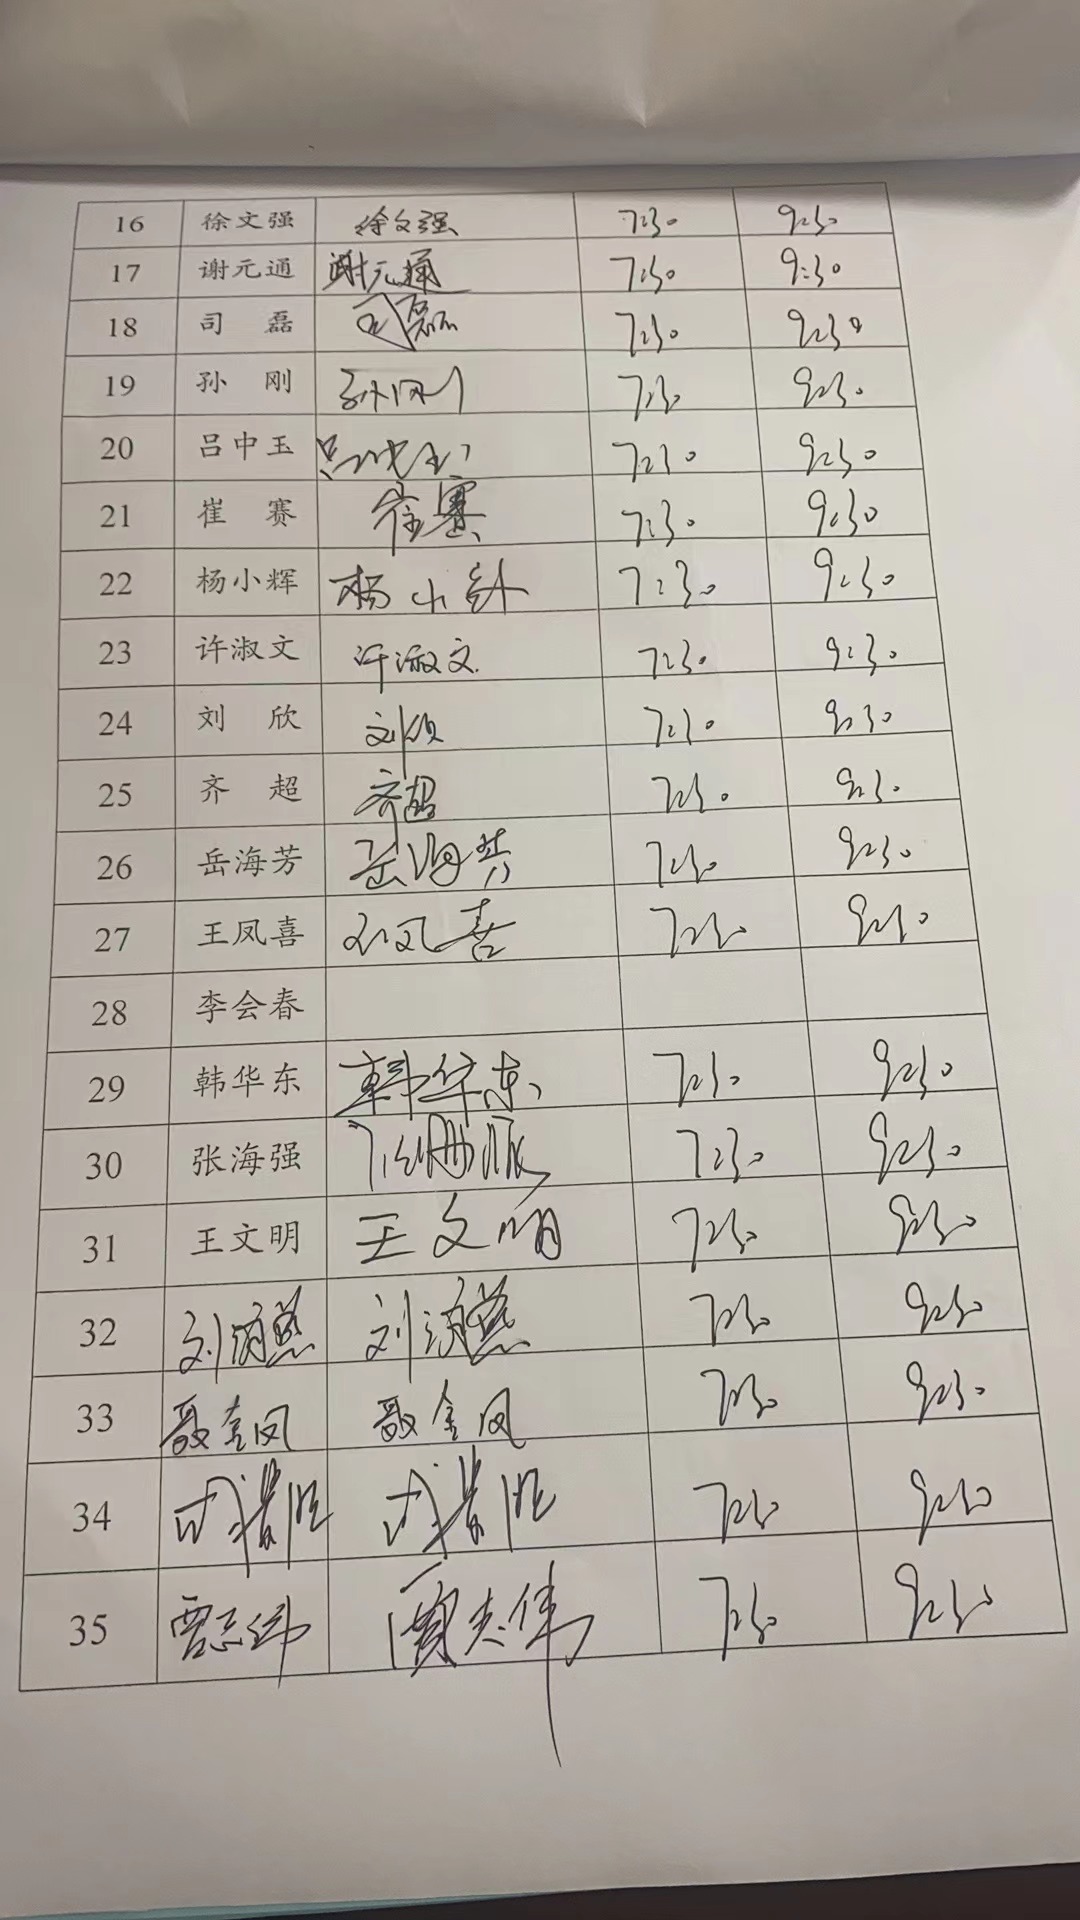 16 徐文强 徐文强 7:30 9:30
17 谢元通 谢元通 7:30 9:30
18 司磊 司磊 7:30 9:30
19 孙刚 孙刚 7:30 9:30
20 吕中玉 吕中玉 7:30 9:30
21 崔赛 崔赛 7:30 9:30
22 杨小辉 杨小辉 7:30 9:30
23 许淑文 许淑文 7:30 9:30
24 刘欣 刘欣 7:30 9:30
25 齐超 齐超 7:30 9:30
26 岳海芳 岳海芳 7:30 9:30
27 王凤喜 王凤喜 7:30 9:30
28 李会春
29 韩华东 韩华东 7:30 9:30
30 张海强 张海强 7:30 9:30
31 王文明 王文明 7:30 9:30
32 刘 刘 7:30 9:30
33 金凤 金凤 7:30 9:30
34 7:30 9:30
35 贾志伟 贾志伟 7:30 9:30